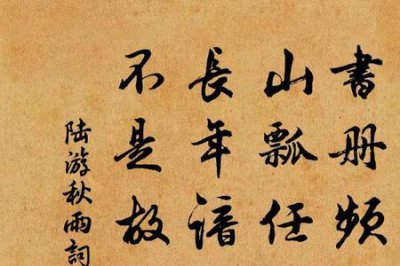 書册頻
山瓢任
長年諳
不是故
陸游秋雨詞